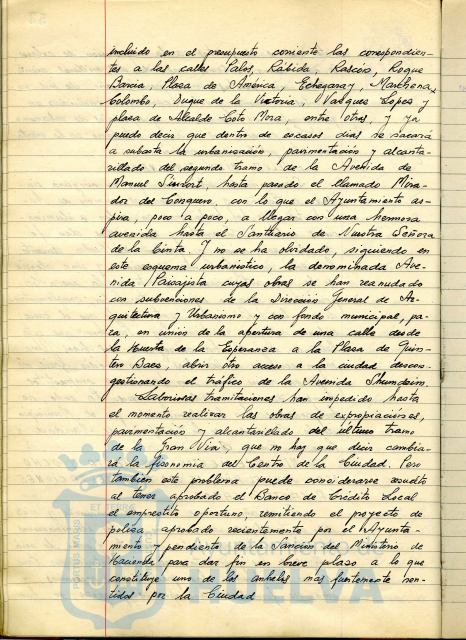 incluido en el presupuesto corriente las correspondien-
tes a las calles Palos, Rábida, Rascón, Roque
Barcia, Plaza de América, Echegaray, Marchena,
Colombo, Duque de la Victoria, Vazquez Lopez y
plaza de Alcalde Coto Mora, entre otras, y ya
puedo decir que dentro de escasos dias se sacará
a subasta la urbanización, pavimentación y alcanta-
rillado del segundo tramo de la Avenida de
Manuel Siurot, hasta pasado el llamado Mira-
dor del Conquero, con lo que el Ayuntamiento as-
pira, poco a poco, a llegar con una hermosa
avenida hasta el Santuario de Nuestra Señora
de la Cinta. Y no se ha olvidado, siguiendo en
este esquema urbanistico, la denominada Ave-
nida Paisajista cuyas obras se han reanudado
con subvenciones de la Dirección General de Ar-
quitectura y Urbanismo y con fondo municipal, pa-
ra, en unión de la apertura de una calle desde
la Huerta de la Esperanza a la Plaza de Quin-
tero Baez, abrir otro acceso a la ciudad descon-
gestionando el tráfico de la Avenida Shundeim.
Laboriosas tramitaciones han impedido hasta
el momento realizar las obras de expropiaciónes,
pavimentación y alcantarillado del último tramo
de la Gran Via, que no hay que decir cambia-
rá la fisonomia del Centro de la Ciudad. Pero
tambien este problema puede considerarse resuelto
al tener aprobado el Banco de Crédito Local
el empréstito oportuno, remitiendo el proyecto de
poliza aprobado recientemente por el Ayunta-
miento y pendiente de la Sanción del Ministerio de
Hacienda para dar fin en breve plazo a lo que
constituye uno de los anhelos mas fuertemente sen-
tidos por la Ciudad
HUELVA